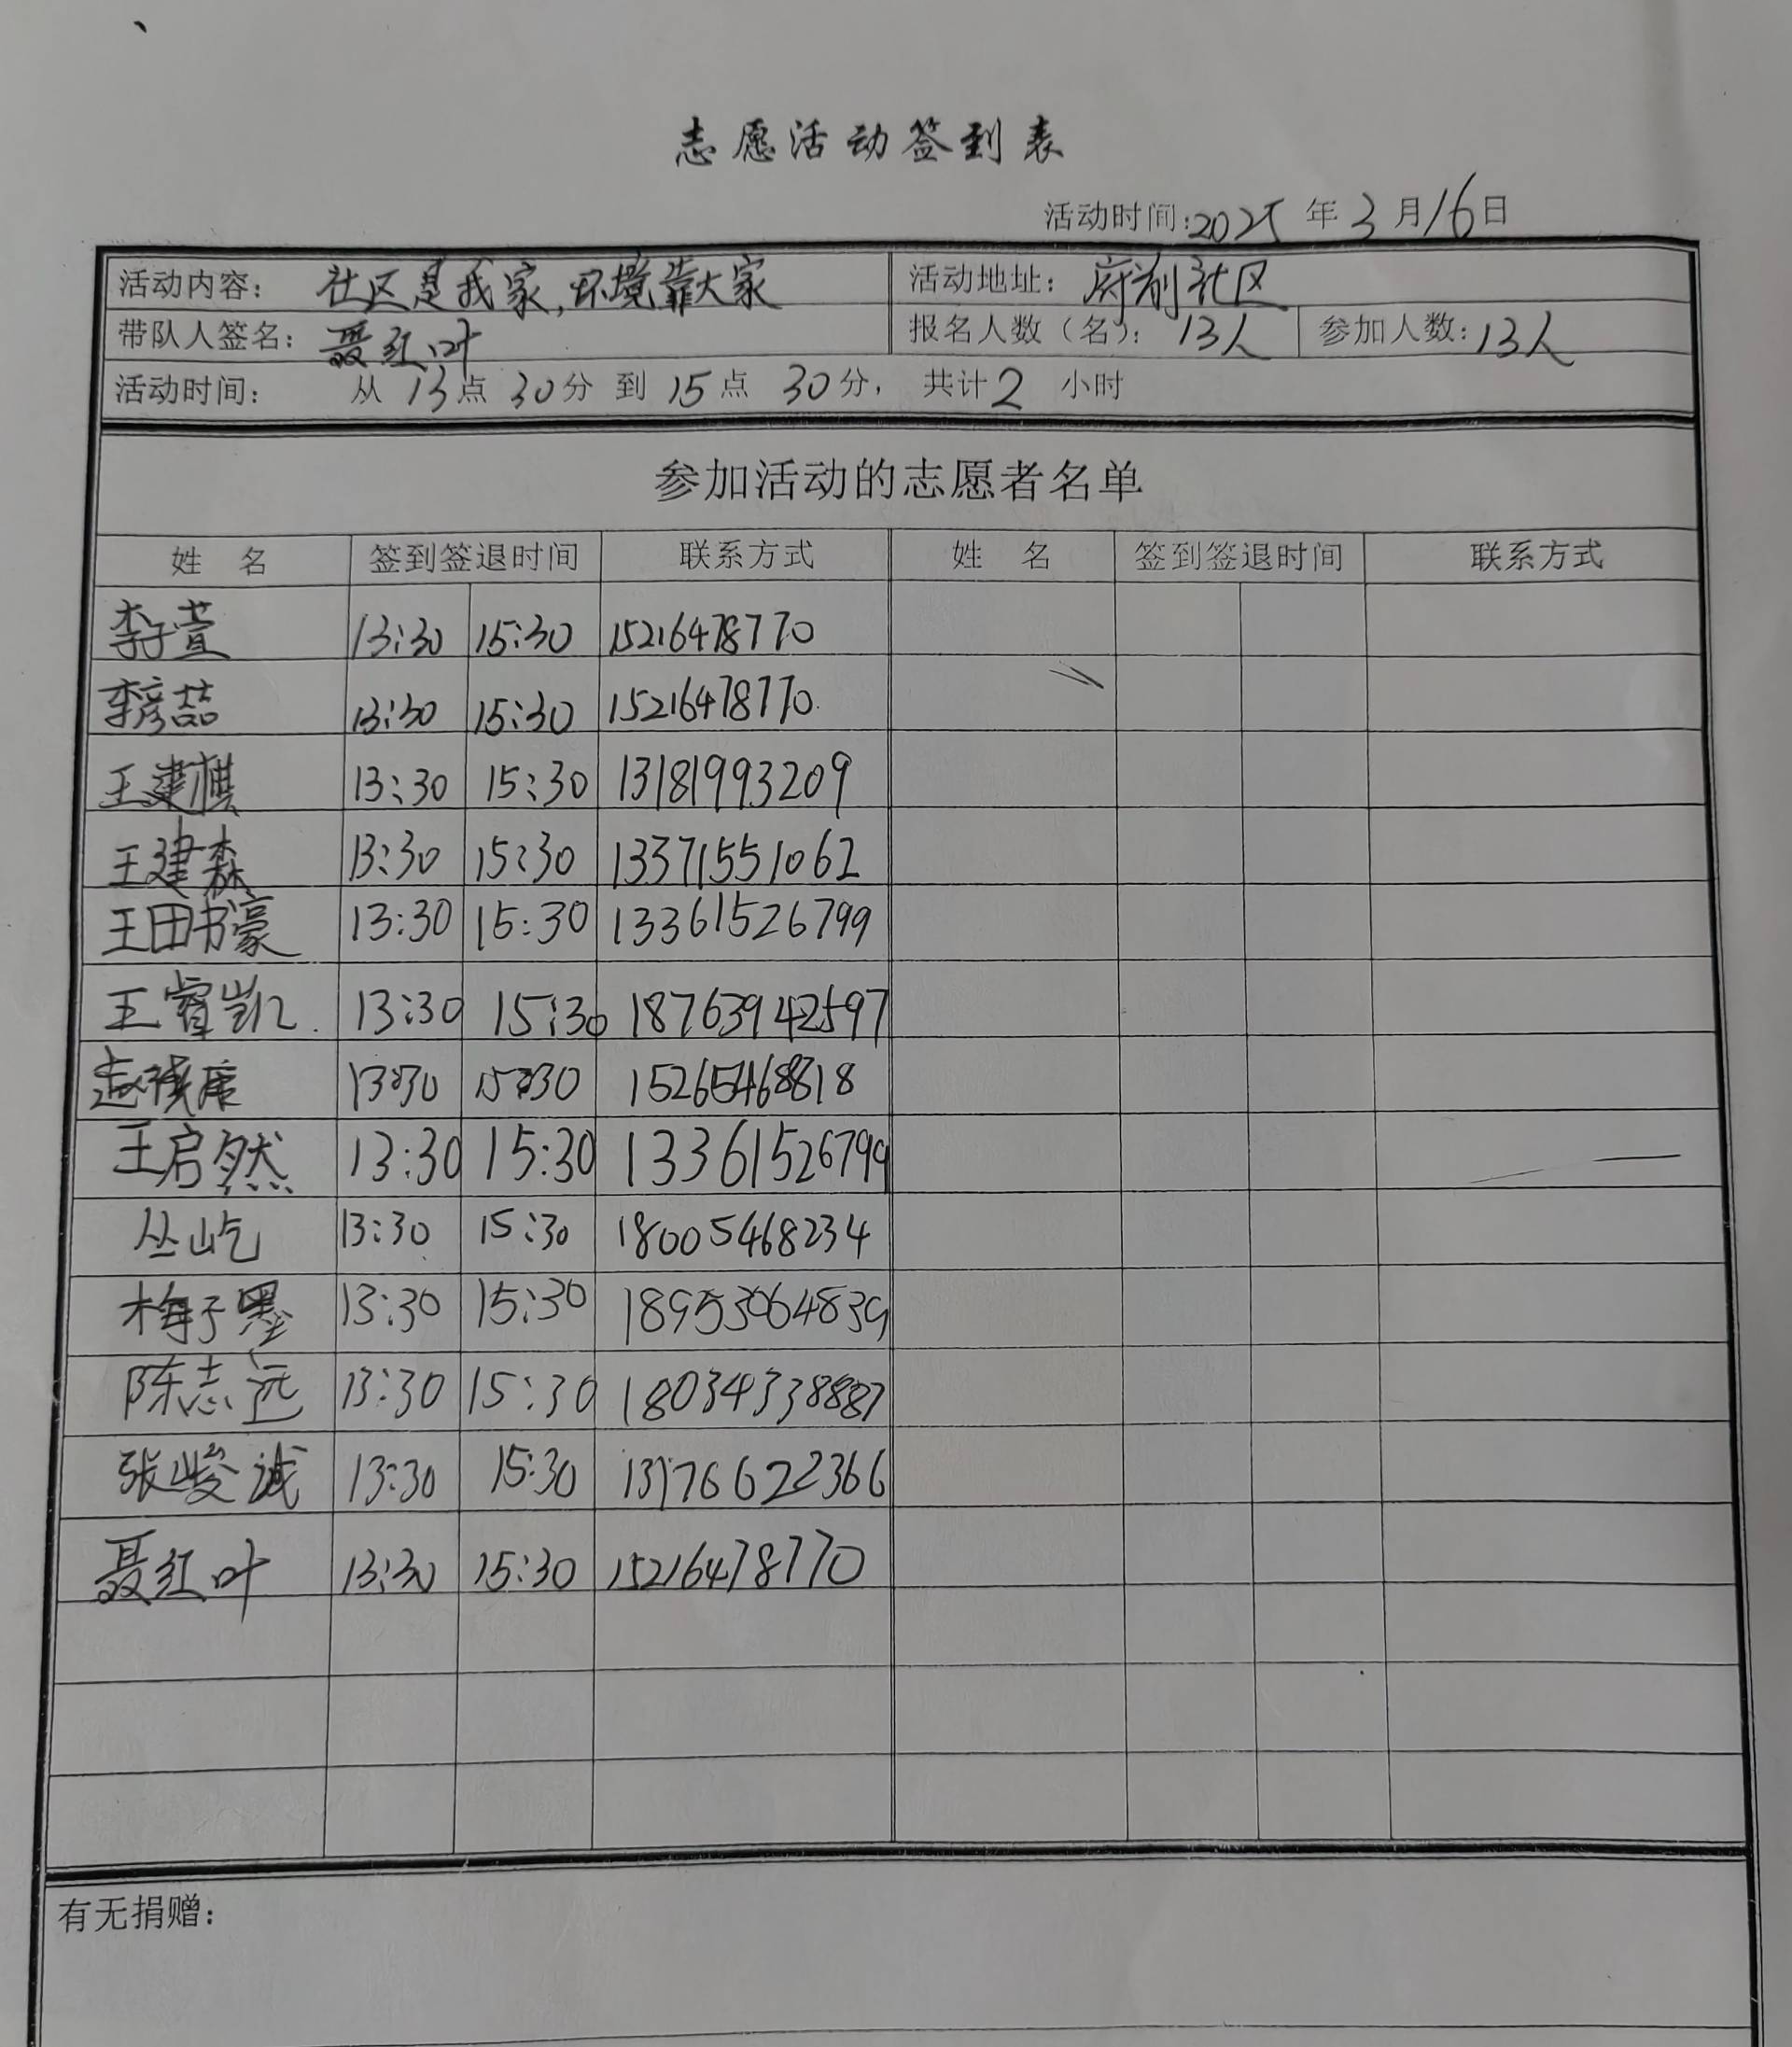 志愿活动签到表
活动时间:2025年3月16日
活动内容: 社区是我家,环境靠大家 活动地址: 府前社区
带队人签名: 聂红叶 报名人数(名): 13人 参加人数: 13人
活动时间: 从13点30分到15点30分, 共计2小时
参加活动的志愿者名单
姓名 签到签退时间 联系方式 姓名 签到签退时间 联系方式
李子萱 13:30 15:30 15216478770
李彦喆 13:30 15:30 15216478770
王建祺 13:30 15:30 13181993209
王建森 13:30 15:30 13371551062
王田书豪 13:30 15:30 13361526799
王睿凯 13:30 15:30 18763942597
13:30 15:30 15265468818
王启然 13:30 15:30 13361526799
丛屹 13:30 15:30 18005468234
梅子墨 13:30 15:30 18953064839
陈志远 13:30 15:30 18034338887
张峻诚 13:30 15:30 13176622366
聂红叶 13:30 15:30 15216478770
有无捐赠: